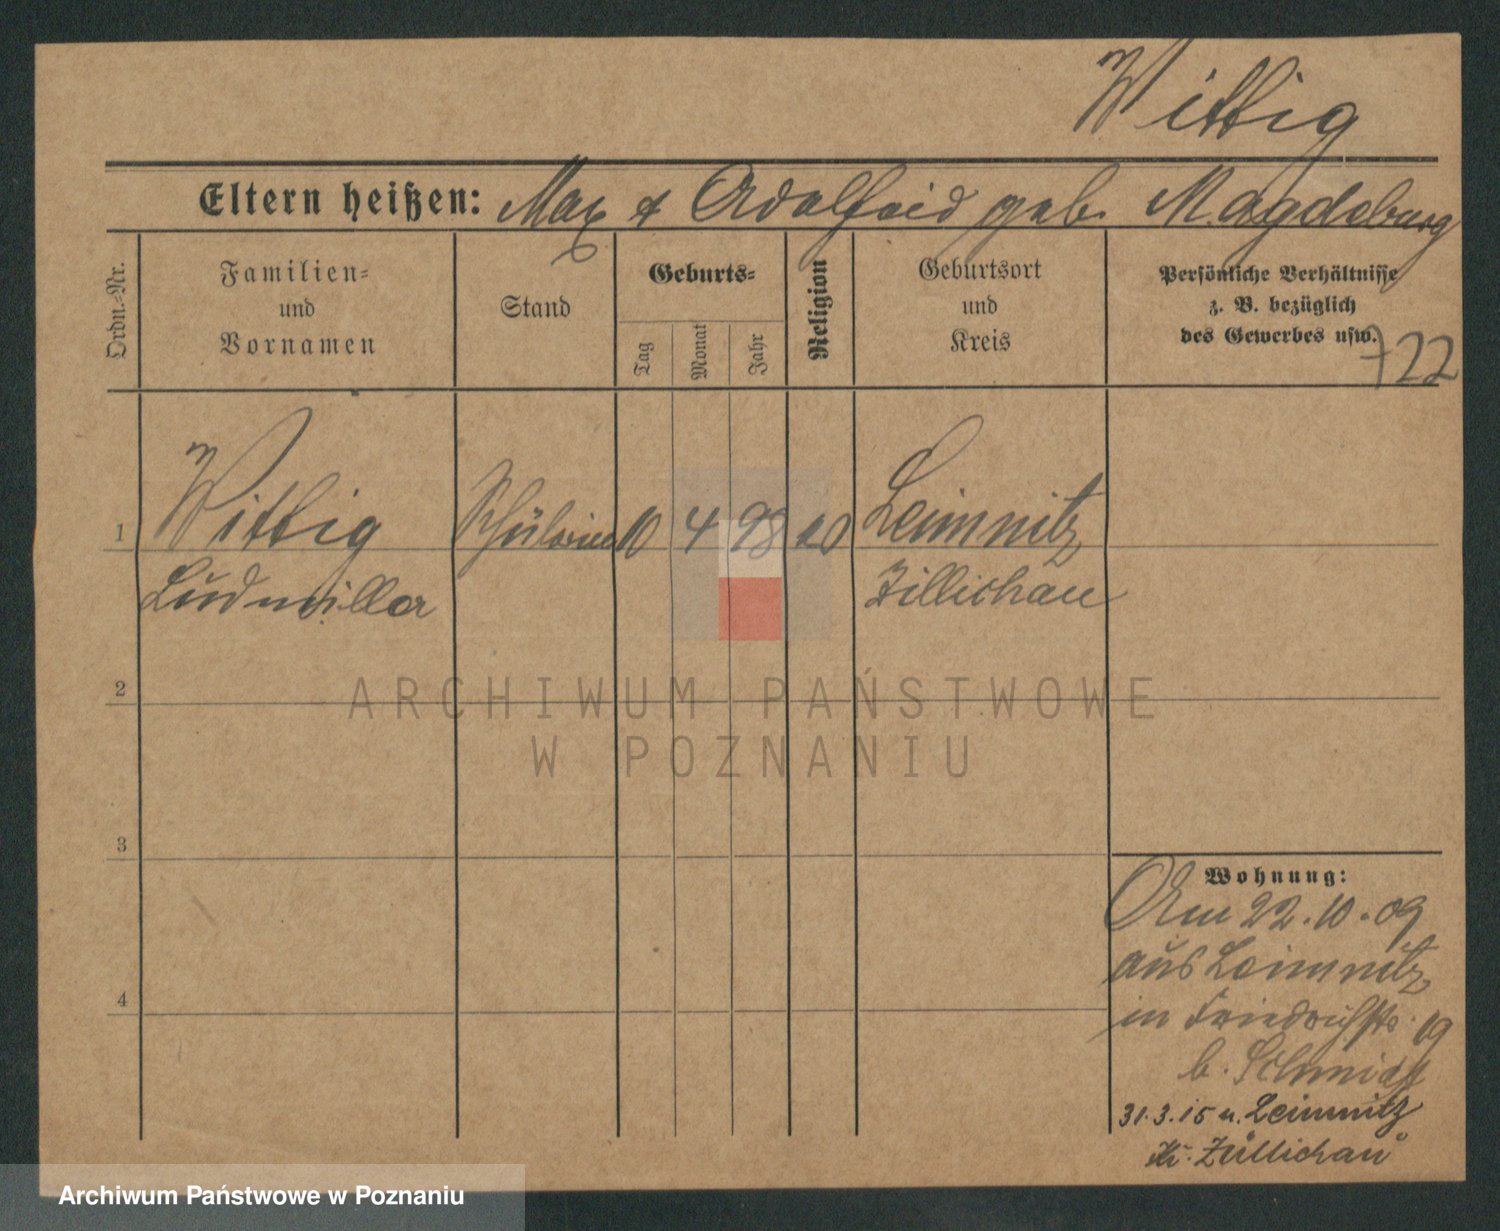 Wittig
Eltern heißen: Max & geb. Magdeburg
Ordn.-Nr.
Familien-
und
Vornamen
Stand
Geburts-
Tag
Monat
Jahr
Religion
Geburtsort
und
Kreis
Persönliche Verhältnisse
z. B. bezüglich
des Gewerbes usw.
722
1
Wittig
Schülerin
10
4
98
Leimnitz
Ludmilla
Zillichau
2
ARCHIWUM PAŃSTWOWE
W POZNANIU
3
4
Wohnung:
Am 22.10.09
aus Leimnitz
in Friedrichstr. 19
b. Schmidt
31.3.15 n. Leimnitz
Kr. Züllichau
Archiwum Państwowe w Poznaniu